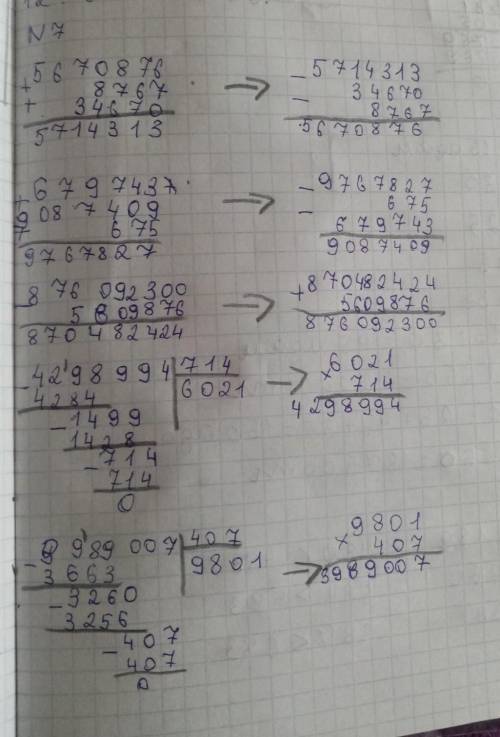 N7
+5670876
+ 8767
34670
5714313
→
-5714313
- 34670
8767
5670876
+679743
+9087409
675
9767827
→
-9767827
- 675
679743
9087409
-876 092300
5609876
870482424
→
+870482424
5609876
876092300
-4298994 714
4284 6021
-1499
1428
-714
714
0
→
×6021
714
4298994
-3989007 407
3663 9801
-3260
3256
-407
407
0
→
×9801
407
3989007